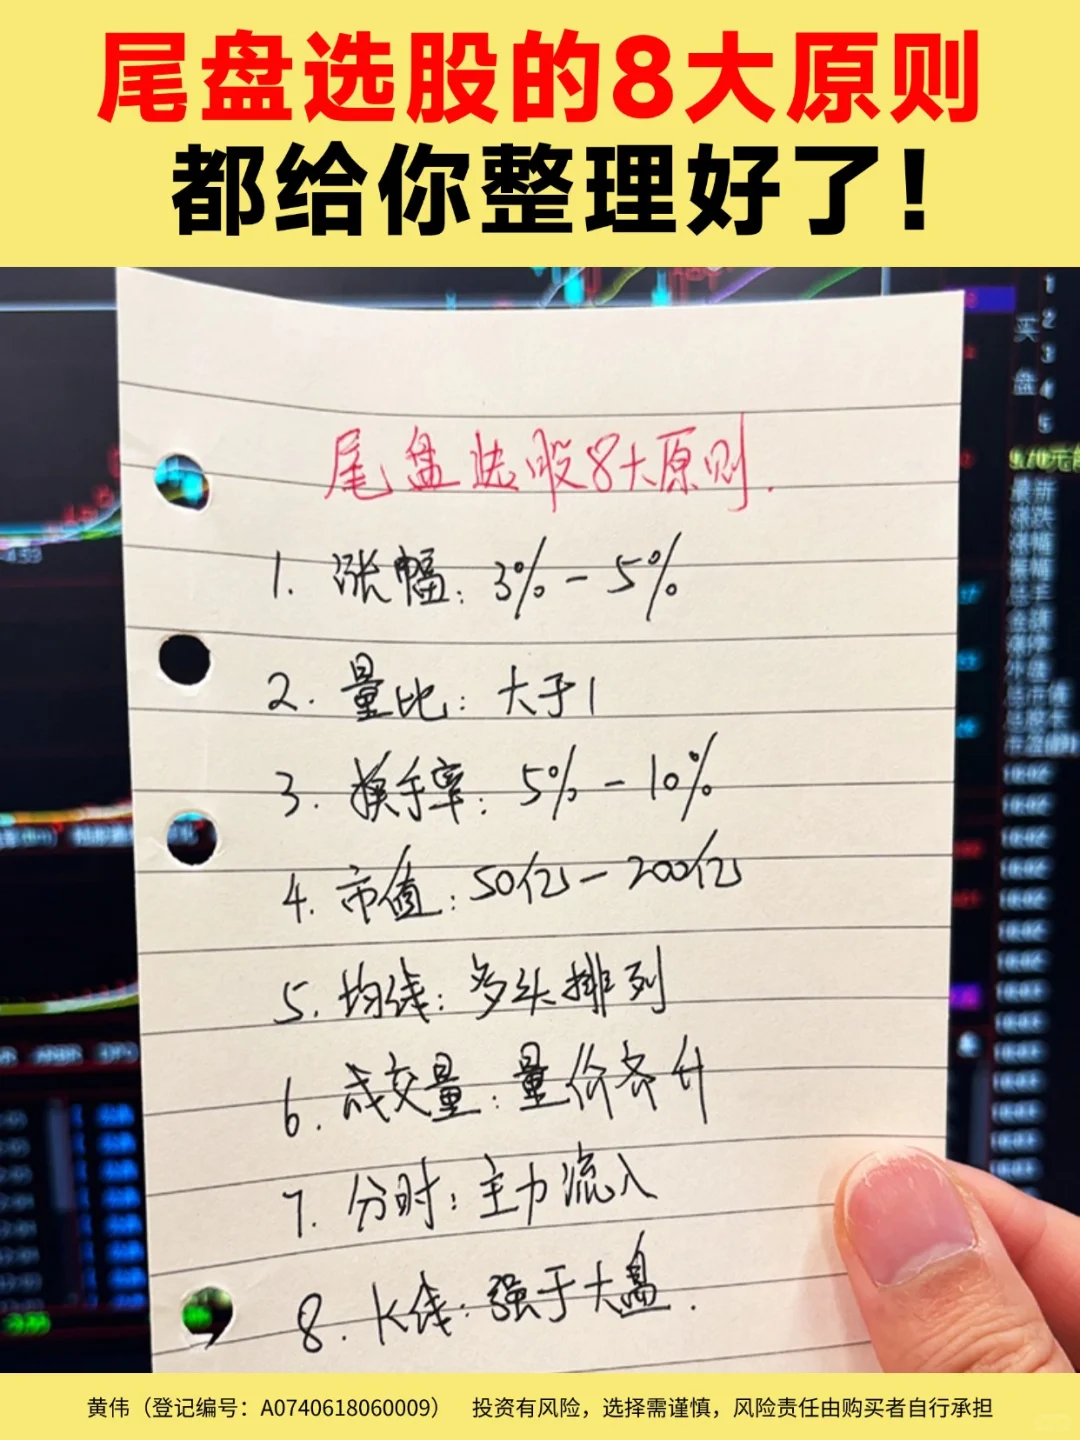 尾盘选股的8大原则
都给你整理好了!
尾盘选股8大原则.
1. 涨幅: 3%-5%
2. 量比: 大于1
3. 换手率: 5%-10%
4. 市值: 50亿-200亿
5. 均线: 多头排列
6. 成交量: 量价齐升
7. 分时: 主力流入
8. K线: 强于大盘.
买盘
1
2
3
4
5
黄伟（登记编号：A0740618060009） 投资有风险，选择需谨慎，风险责任由购买者自行承担